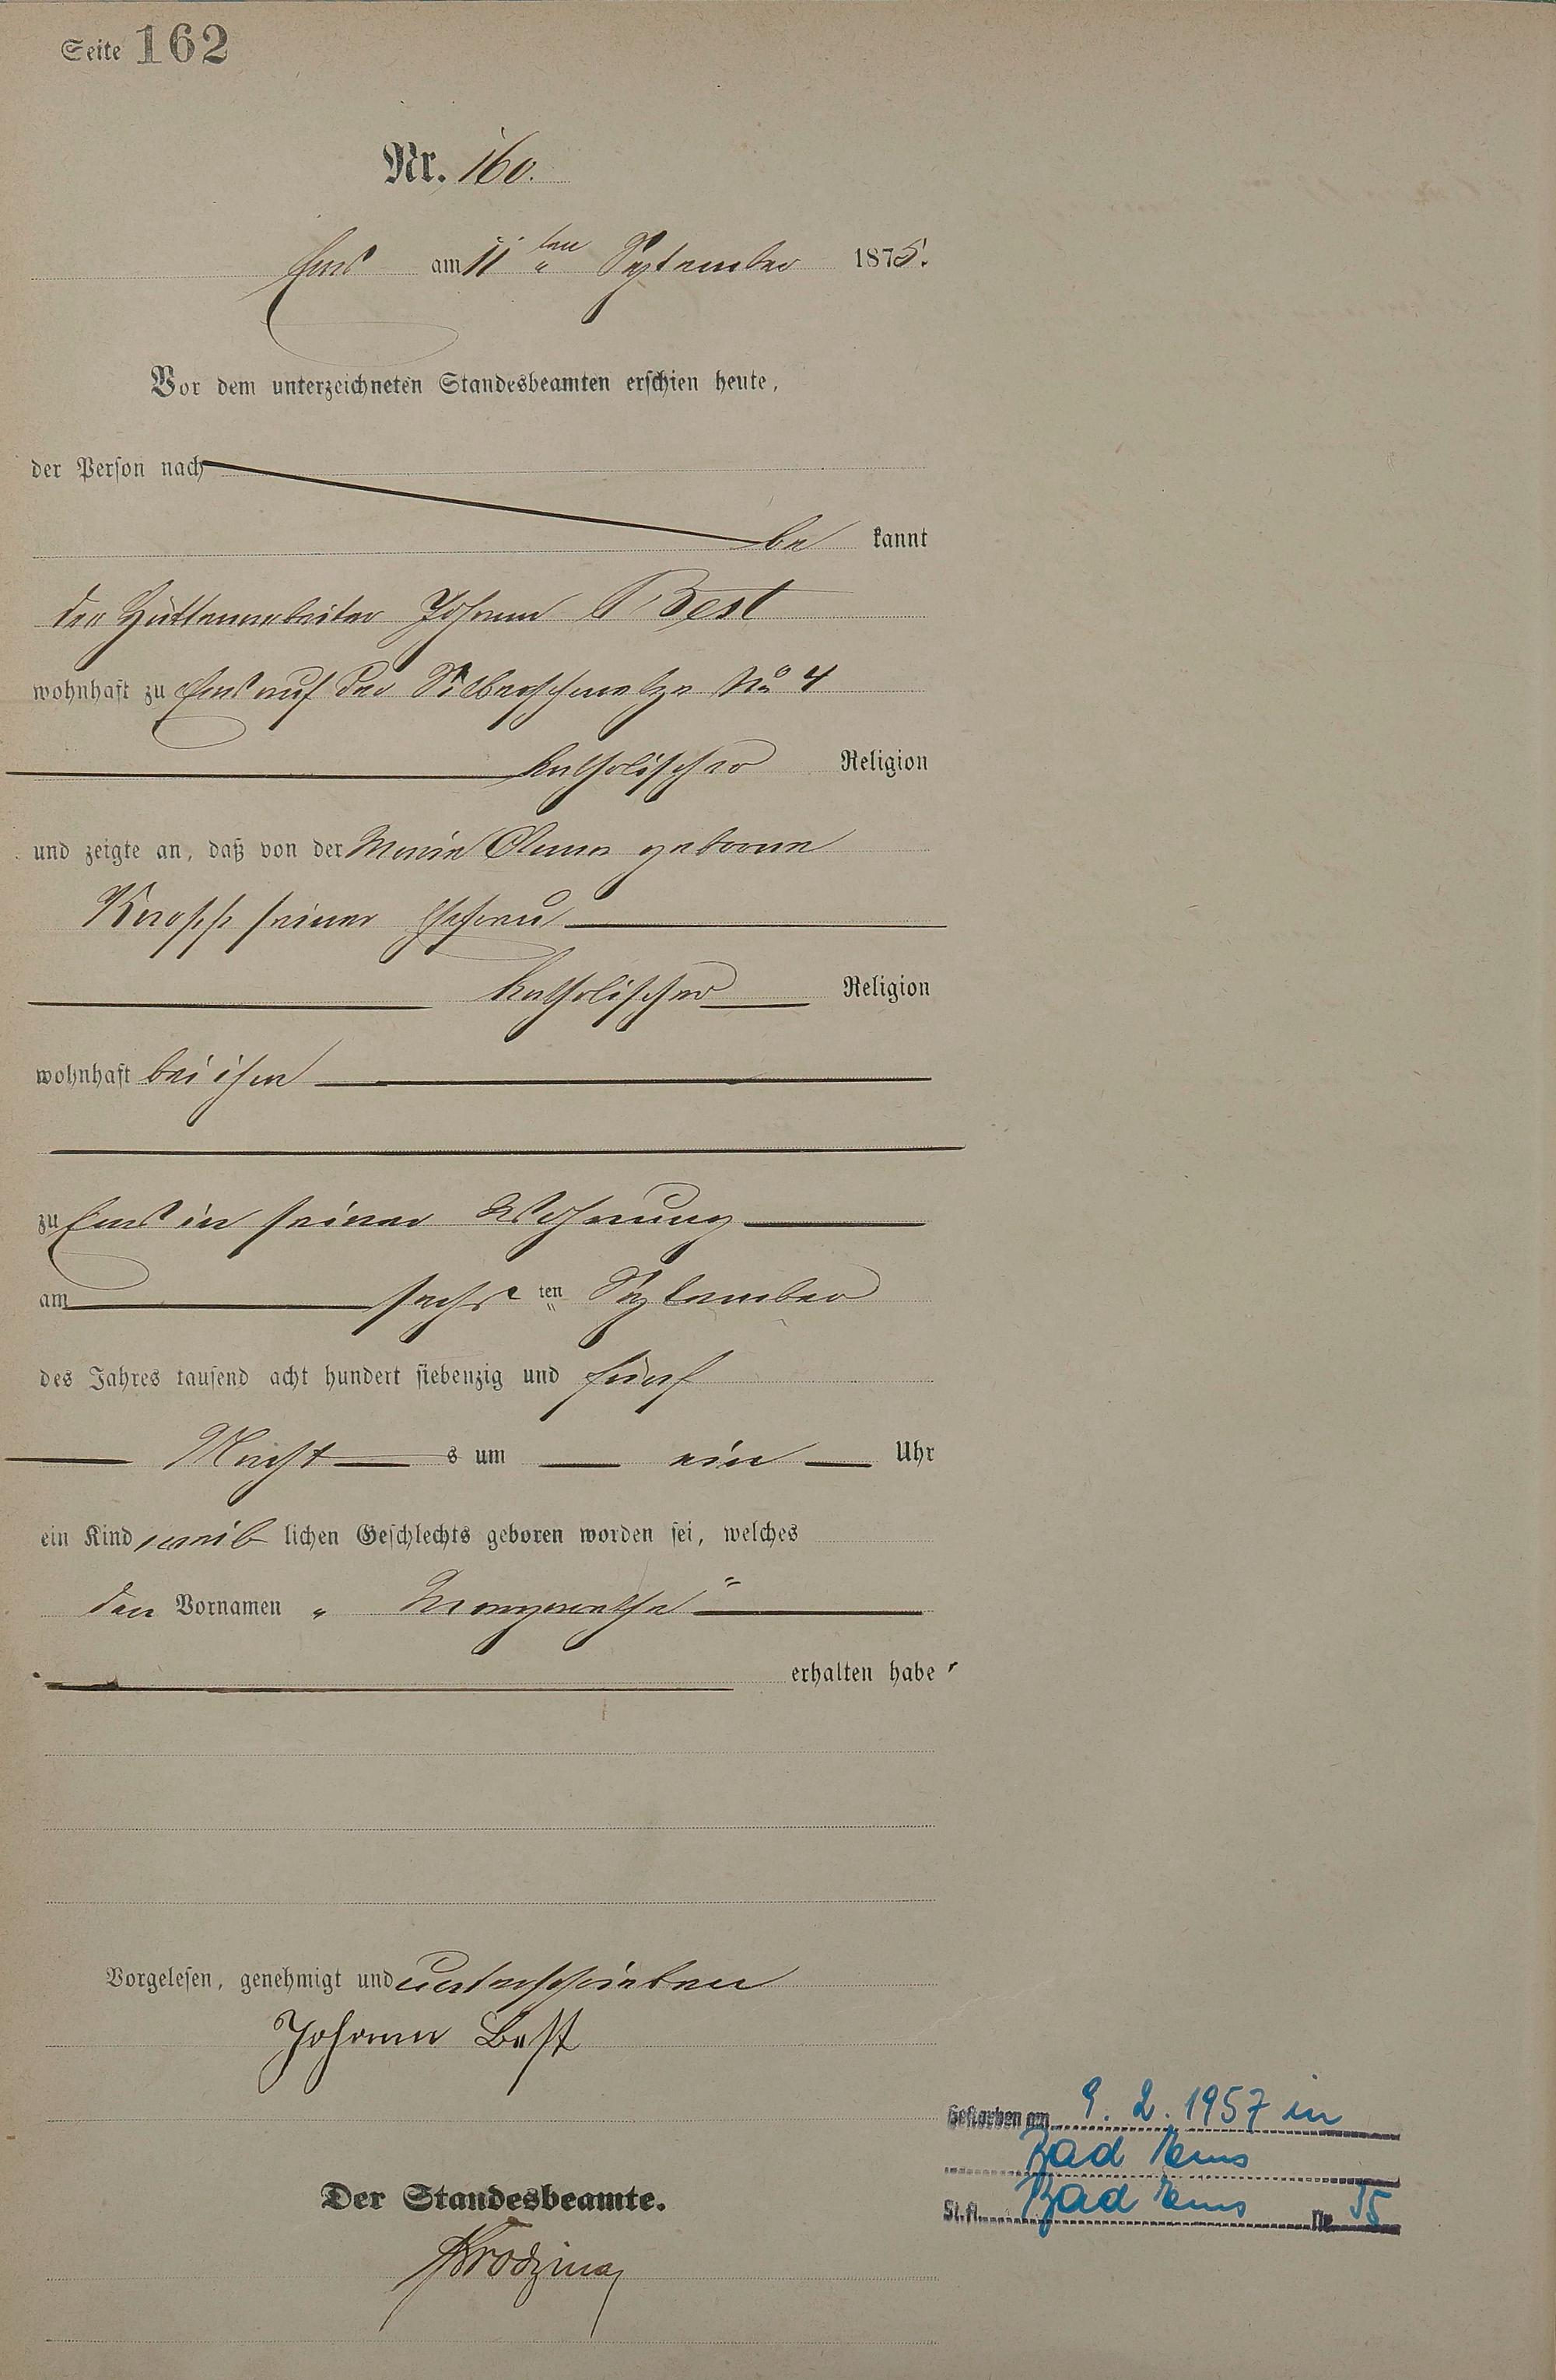 Seite 162
Nr. 160.
Ems am 11ten September 1875.
Vor dem unterzeichneten Standesbeamten erschien heute,
der Person nach
be kannt
der Hüttenarbeiter Johann Best
wohnhaft zu Ems auf der Silberschmelze No 4
katholischer Religion
und zeigte an, daß von der Maria Anna geborne
Knopp seiner Ehefrau
katholischer Religion
wohnhaft bei ihm
zu Ems in seiner Wohnung
am sechs ten September
des Jahres tausend acht hundert siebenzig und fünf
Nacht s um ein Uhr
ein Kind weib lichen Geschlechts geboren worden sei, welches
den Vornamen „ Margarethe "
erhalten habe
Vorgelesen, genehmigt und unterschrieben
Johann Best
Der Standesbeamte.
Gestorben am 9. 2. 1957 in
Bad Ems
St.A. Bad Ems Nr. 55